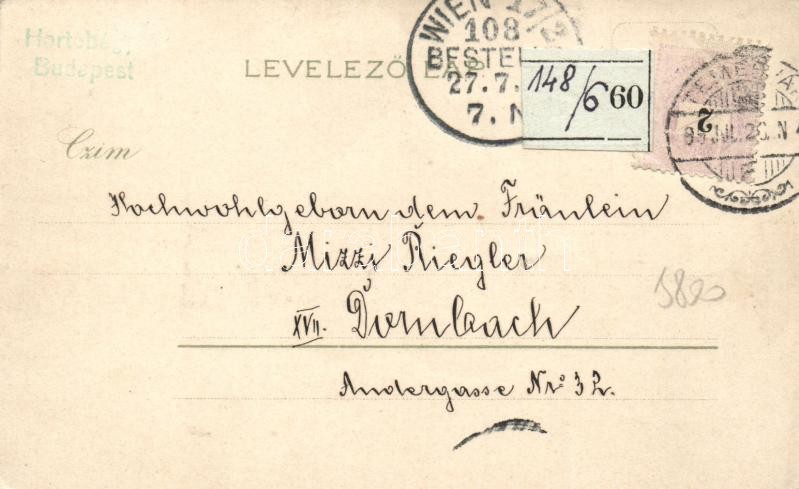 Hortobágy
Budapest
LEVELEZŐ LAP
WIEN 17/2
108
BESTELLT
27.7.
7. N
148/6 60
2
Czim
Hochwohlgeborn dem Fräulein
Mizzi Riegler
XVII. Dornbach
Andergasse Nro 32.
5820